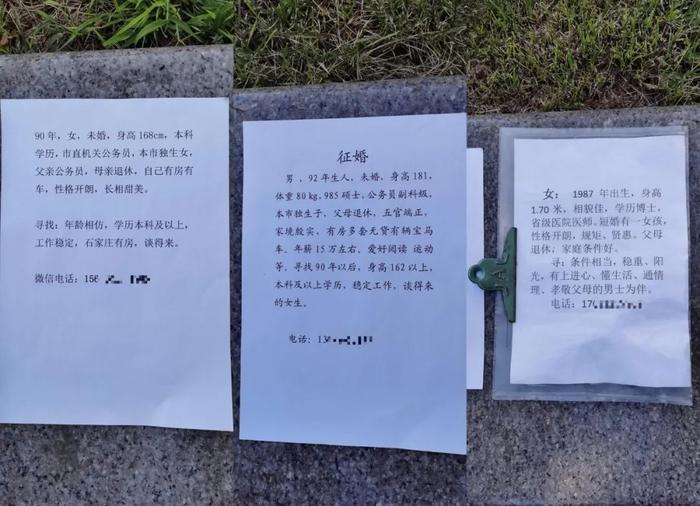 90 年，女，未婚，身高 168cm，本科
学历，市直机关公务员，本市独生女，
父亲公务员，母亲退休，自己有房有
车，性格开朗，长相甜美。
寻找：年龄相仿，学历本科及以上，
工作稳定，石家庄有房，谈得来。
微信电话：156
征婚
男 ，92 年生人，未婚，身高 181，
体重 80 kg，985 硕士，公务员副科级，
本市独生子，父母退休，五官端正，
家境殷实，有房多套无贷有辆宝马
车。年薪 15 万左右，爱好阅读 运动
等。寻找 90 年以后，身高 162 以上，
本科及以上学历，稳定工作，谈得来
的女生。
电话：13
女： 1987 年出生，身高
1.70 米，相貌佳，学历博士，
省级医院医师。短婚有一女孩，
性格开朗、规矩、贤惠。父母
退休，家庭条件好。
寻：条件相当，稳重、阳
光，有上进心、懂生活、通情
理、孝敬父母的男士为伴。
电话：17